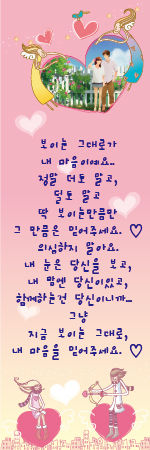 보이는 그대로가
내 마음이예요..
정말 더도 말고,
덜도 말고
딱 보이는만큼만
그 만큼은 믿어주세요. ♡
의심하지 말아요.
내 눈은 당신을 보고,
내 맘엔 당신이있고,
함께하는건 당신이니까...
그냥
지금 보이는 그대로,
내 마음을 믿어주세요. ♡